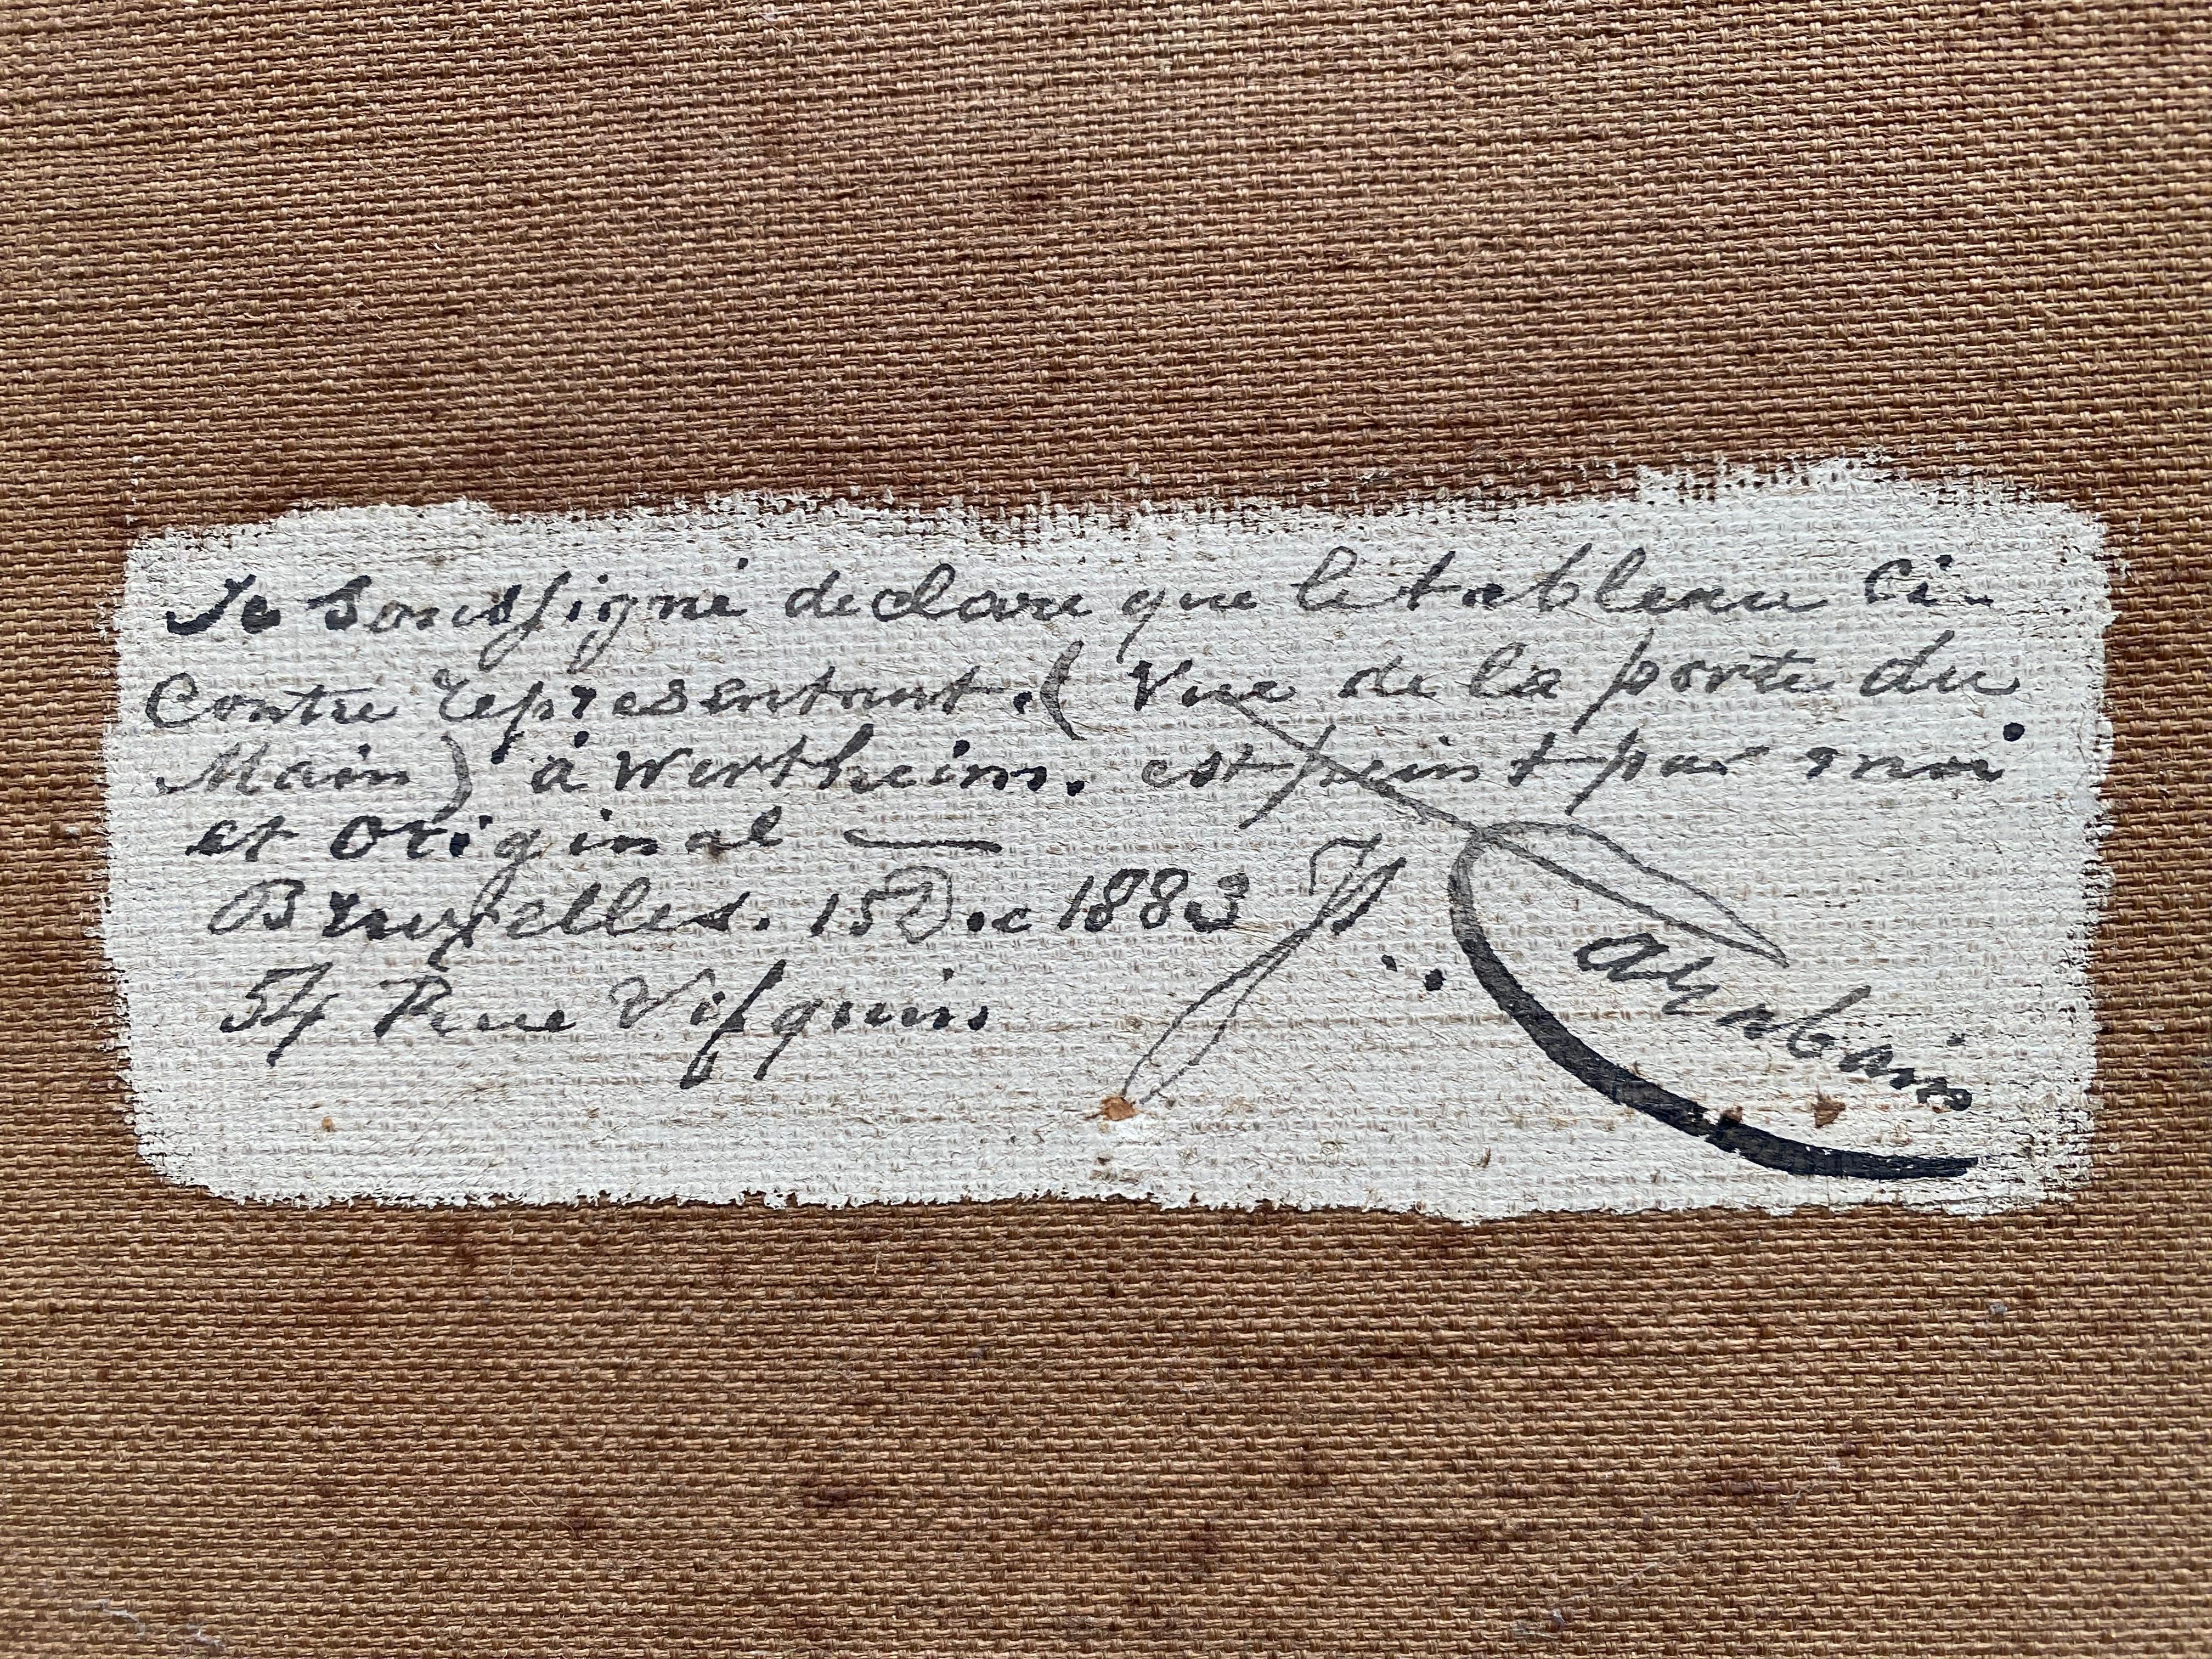 Je Soussigné declare que le tableau Ci-
Contre representant. ( Vue de la porte du
Main ) à Wertheim. est peint par moi
et Original —
Bruxelles. 15 D.c 1883
54 Rue Vifquin